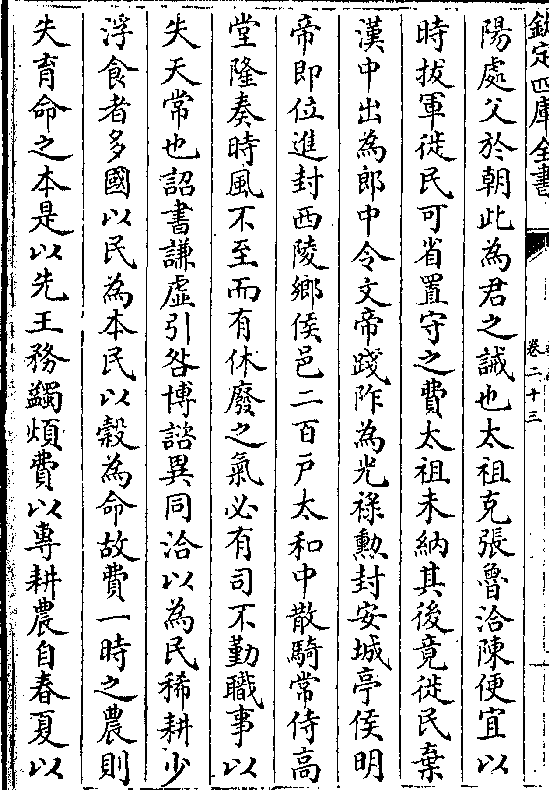 欽定四庫全書
卷二十三
陽處父於朝此為君之誡也太祖克張魯洽陳便宜以
時拔軍徙民可省置守之費太祖未納其後竟徙民棄
漢中出為郎中令文帝踐阼為光祿勲封安城亭侯明
帝即位進封西陵鄉侯邑二百戸太和中散騎常侍高
堂隆奏時風不至而有休廢之氣必有司不勤職事以
失天常也詔書謙虛引咎博諮異同洽以為民稀耕少
浮食者多國以民為本民以穀為命故費一時之農則
失育命之本是以先王務蠲煩費以專耕農自春夏以